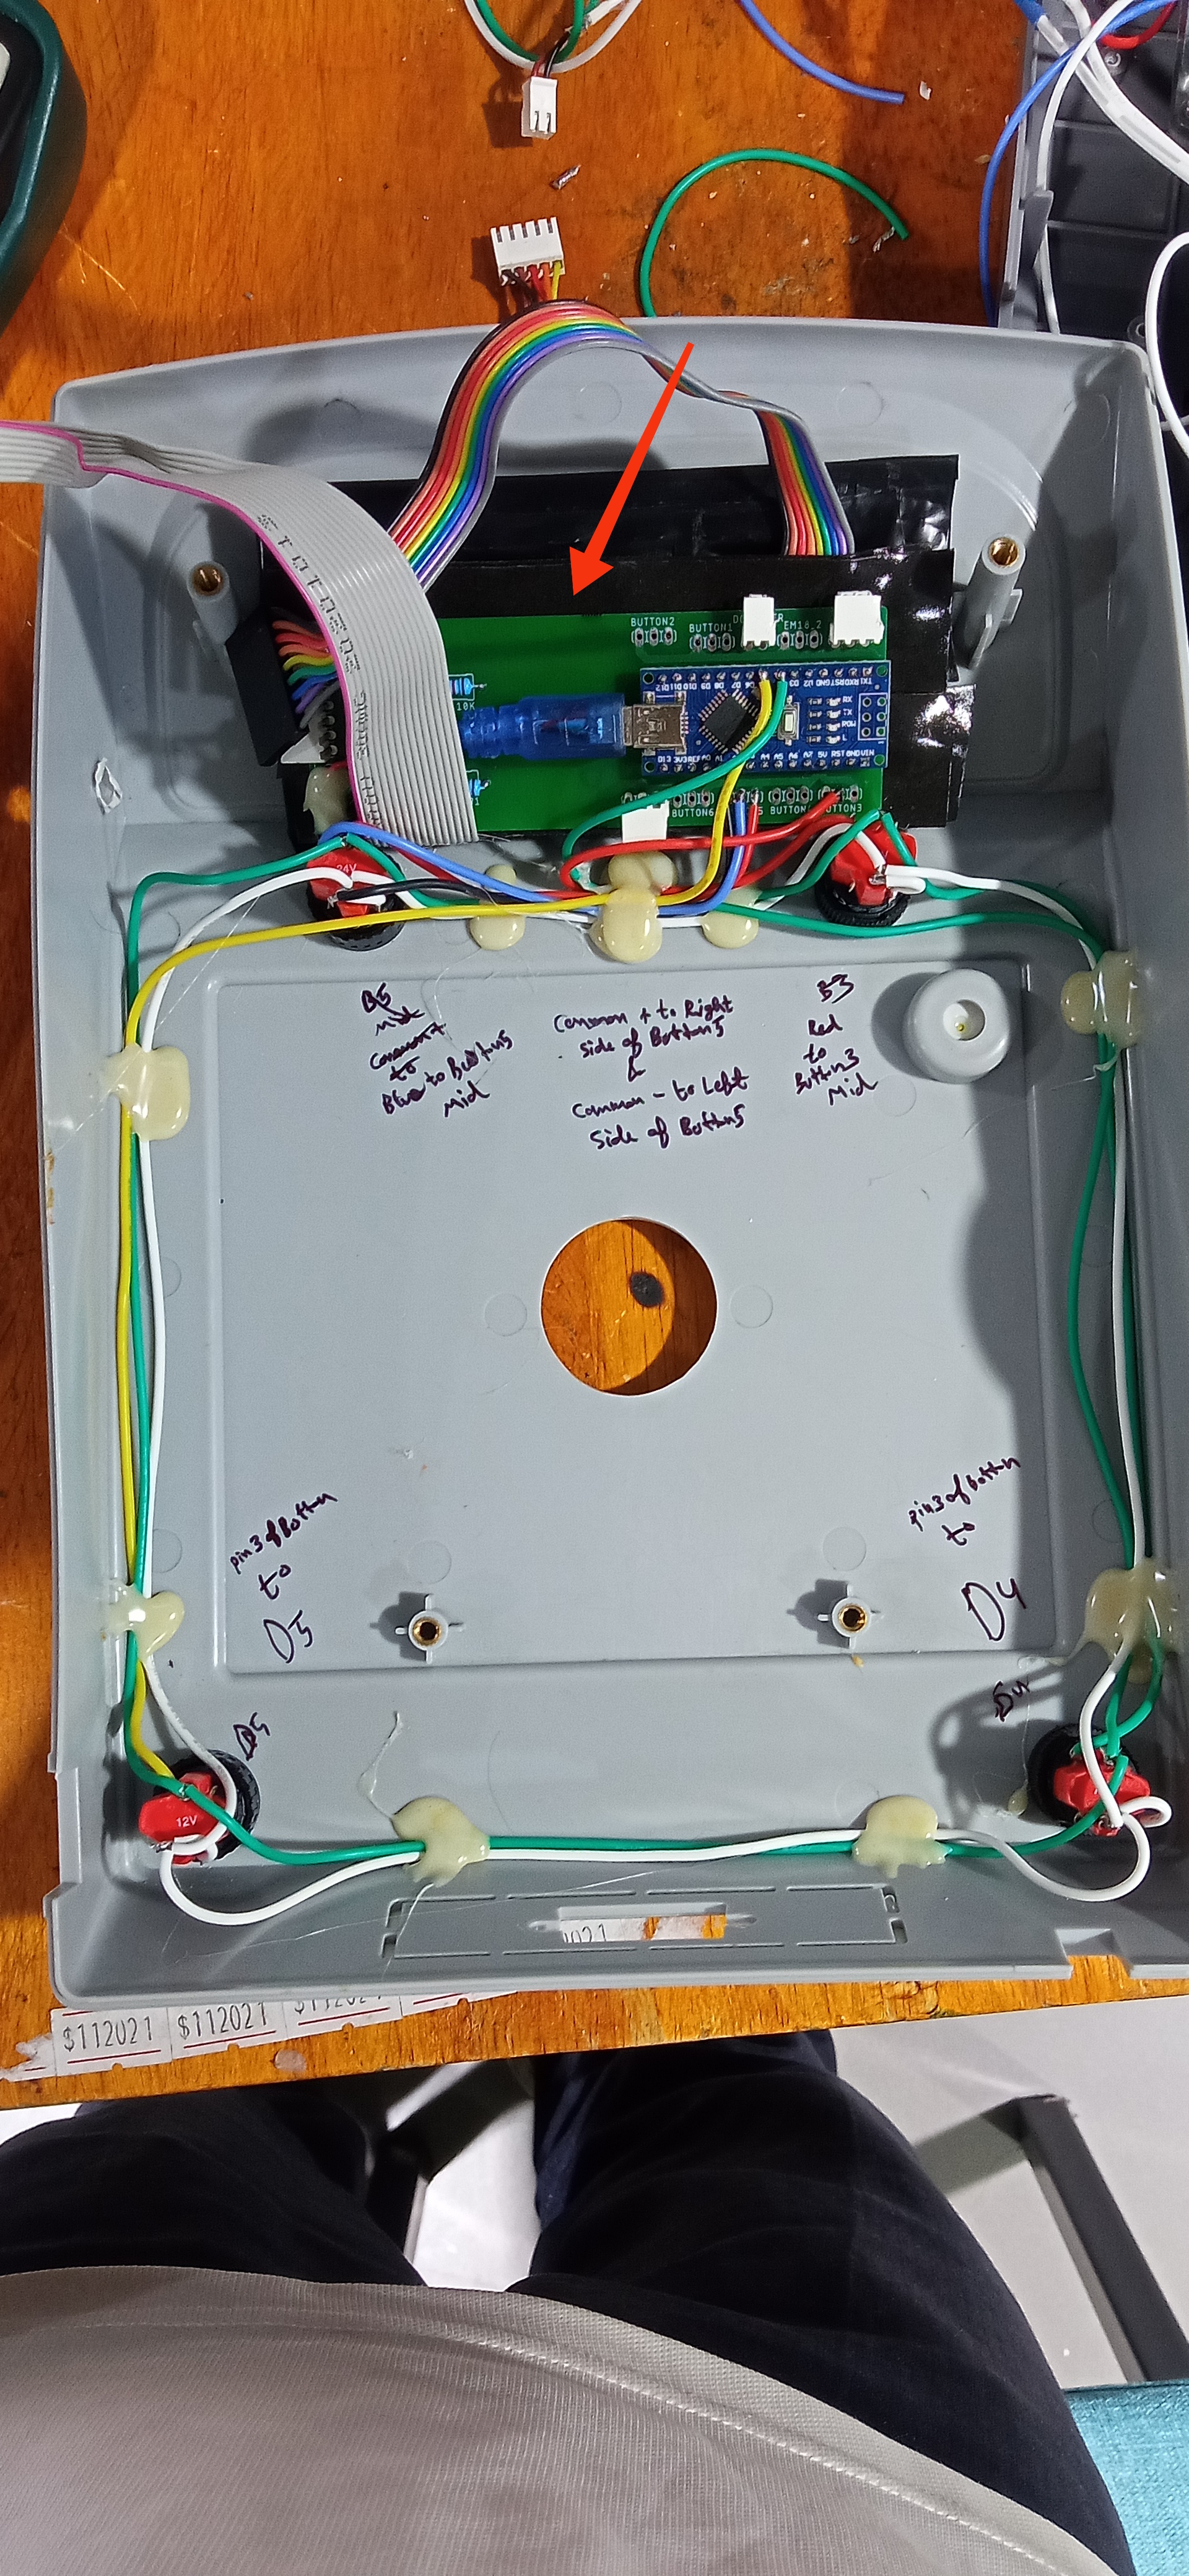 BUTTON2
BUTTON1
EM18_2
10K
D12
D11
D10
D9
D8
D7
D3
D2
GND
RST
RX0
TX1
RX
TX
POW
L
D13 3V3 REF A0 A1
A4 A5 A6 A7 5V RST GND VIN
BUTTON6
5
BUTTON
BUTTON3
24V
B5
Mid
Common +
to
Blue to Button5
Mid
Common + to Right
Side of Button5
&
Common - to Left
Side of Button5
B3
Red
to
Button3
Mid
pin3 of Button
to
D5
pin3 of button
to
D4
D5
D4
12V
$112021
$112021